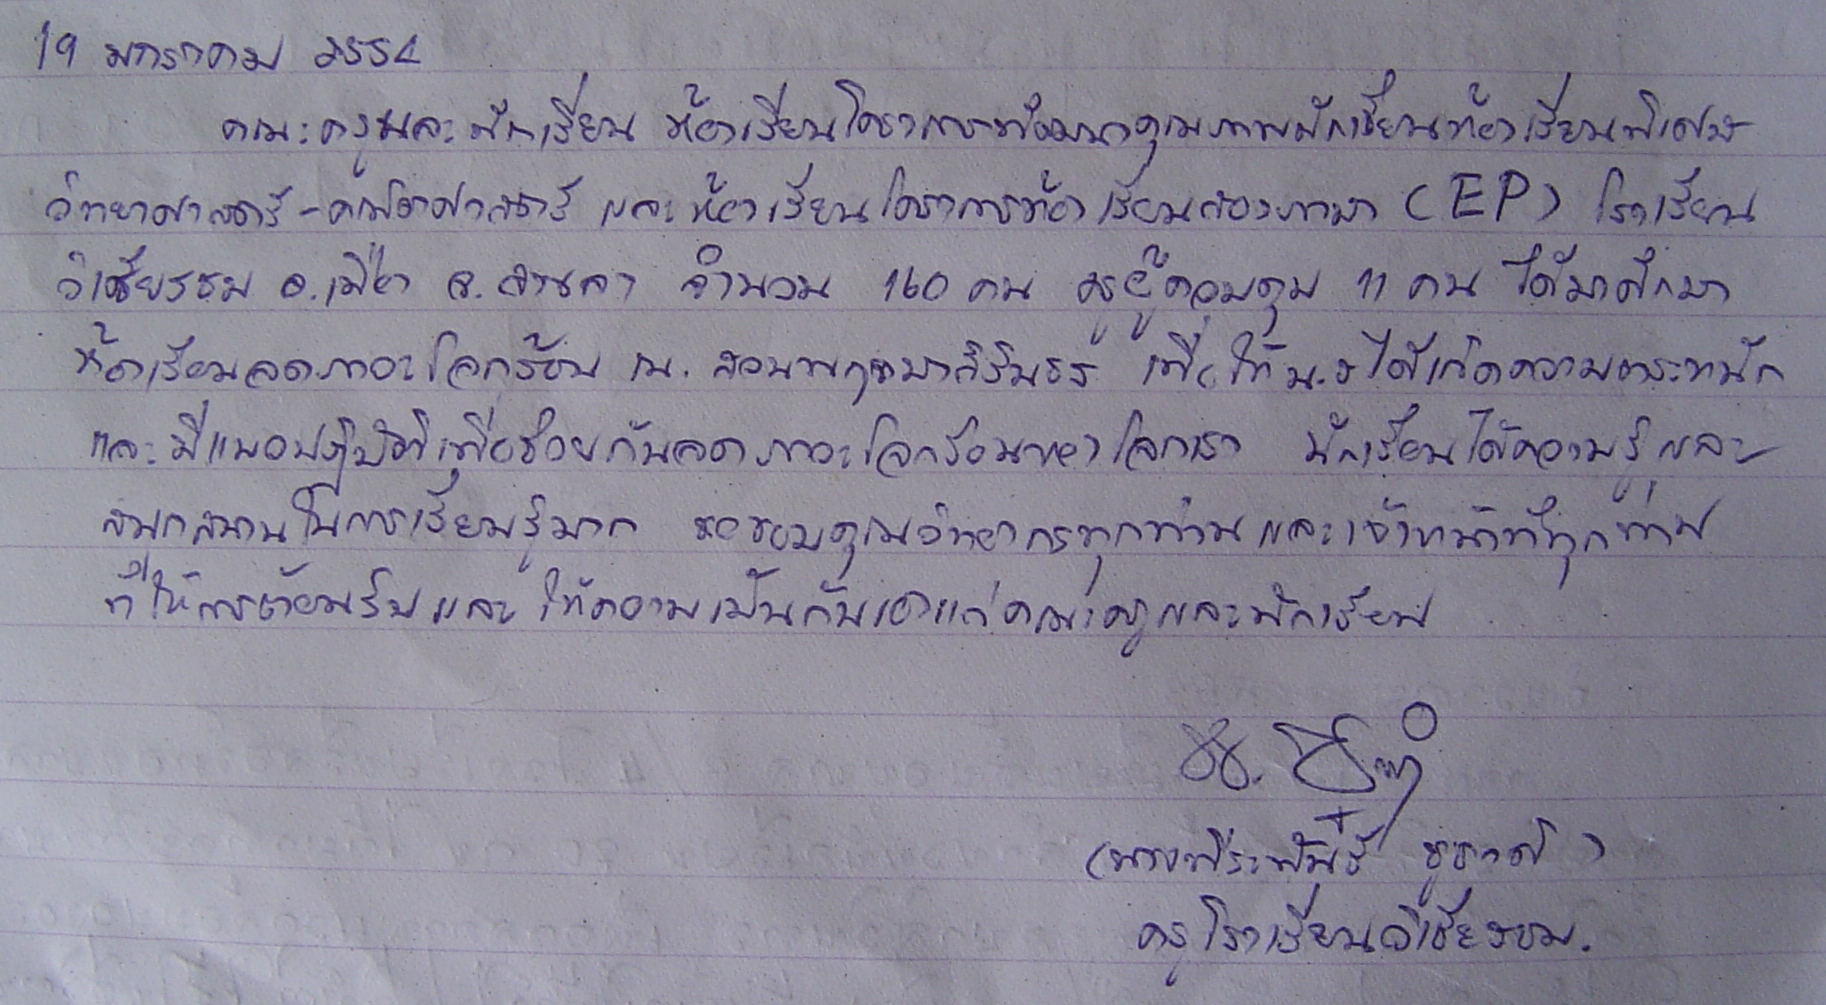 19 มกราคม 2554
คณะครูและนักเรียน ห้องเรียนโครงการพัฒนาคุณภาพนักเรียนห้องเรียนพิเศษ
วิทยาศาสตร์-คณิตศาสตร์ และห้องเรียนโครงการห้องเรียนสองภาษา (EP) โรงเรียน
วิเชียรชม อ.เมือง จ.สงขลา จำนวน 160 คน ครูผู้ควบคุม 11 คน ได้มาศึกษา
ห้องเรียนลดภาวะโลกร้อน ณ. สวนพฤกษาสิรินธร เพื่อให้ น.ร ได้เกิดความตระหนัก
และมีแนวปฏิบัติเพื่อช่วยกันลดภาวะโลกร้อนของโลกเรา นักเรียนได้ความรู้และ
สนุกสนานในการเรียนรู้มาก ขอขอบคุณวิทยากรทุกท่านและเจ้าหน้าที่ทุกท่าน
ที่ให้การต้อนรับและให้ความเป็นกันเองแก่คณะครูและนักเรียน
(นางพีระพันธ์ ชูชาติ)
ครูโรงเรียนวิเชียรชม.